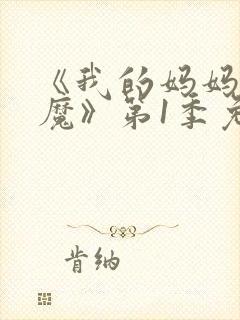 《我的妈妈
魔》第1季
肯纳